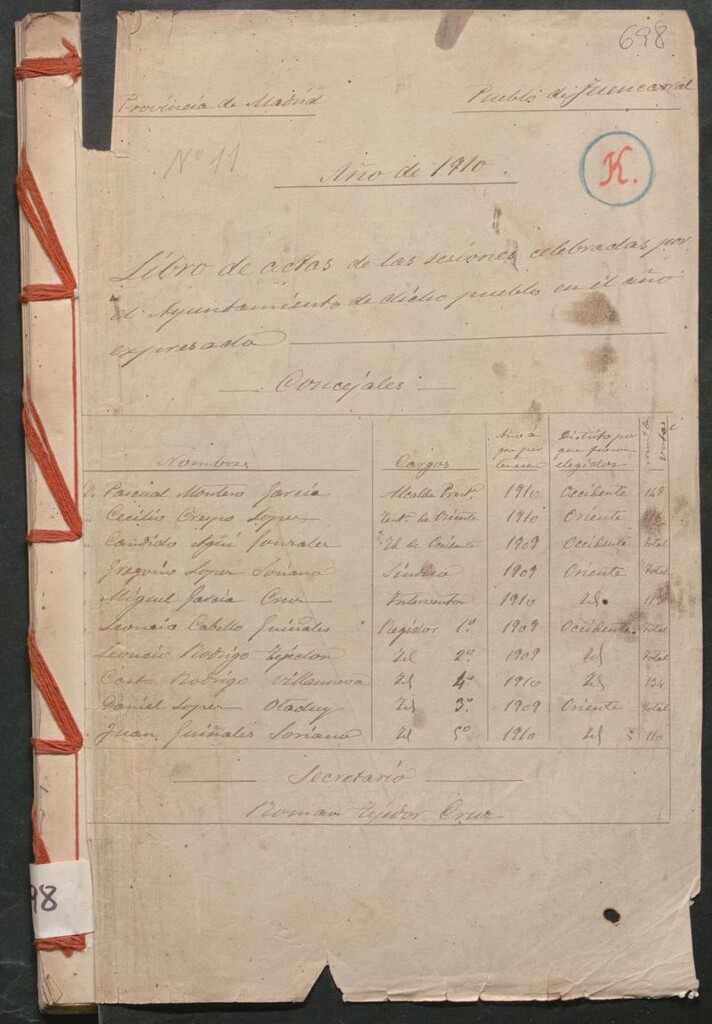 698
Provincia de Madrid
Pueblo de Fuencarral
Nº 11
Año de 1910.
K.
Libro de actas de las sesiones celebradas por
el Ayuntamiento de dicho pueblo en el año
expresado
Concejales
Nombres Cargos Año a que pertenecen Distrito por que fueron elegidos votos
D. Pascual Montero Garcia Alcalde Preste. 1910 Occidente 148
" Cecilio Crespo Lopez Tente. de Oriente 1910 Oriente
" Candido Agüi Gonzalez Id de Occidente 1909 Occidente Total
" Gregorio Lopez Soriano Síndico 1909 Oriente Total
" Miguel Garcia Cruz Interventor 1910 Id
" Leoncio Cabello Guiñales Regidor 1º 1909 Occidente Total
Leoncio Rodrigo Id 2º 1909 Id Total
Casto Rodrigo Villanueva Id 4º 1910 Id 134
Daniel Lopez Otaduy Id 3º 1909 Oriente Total
" Juan Guiñales Soriano Id 5º 1910 Id 110
Secretario
Roman Tejedor Cruz
98